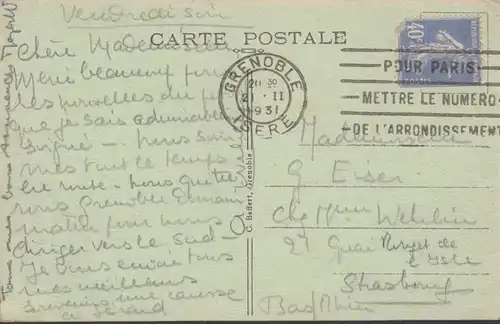 Vendredi soir
CARTE POSTALE
Chère Mademoiselle
Merci beaucoup pour
les nouvelles du
que je sais admirablement
soigné - nous
tout le temps
en route - nous quittons
Grenoble demain
matin pour nous
diriger vers le Sud -
Je vous envoie tous
mes meilleurs
souvenirs une caresse
à
Tous mes bons
GRENOBLE
20 30
21 - II
1931
ISERE
40c
POUR PARIS
METTRE LE NUMERO
DE L'ARRONDISSEMENT
C. Baffert, Grenoble
Mademoiselle
G
Chez Mme
27 Quai Rouget de
l'Isle
Strasbourg
Bas/Rhin